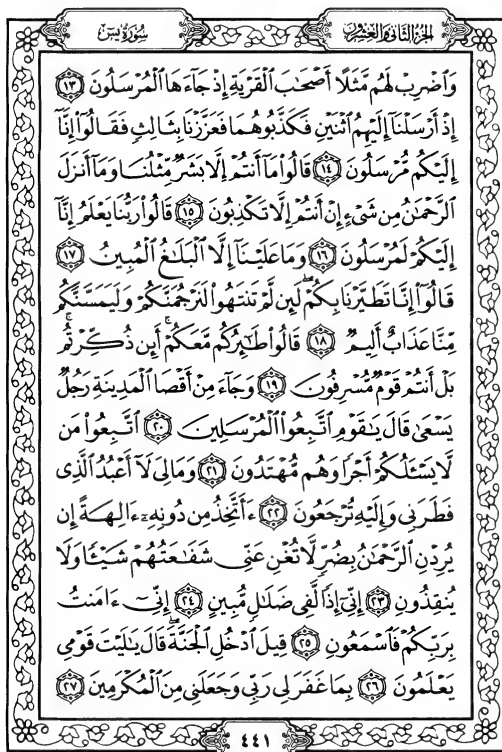 سُورَةُ يسٓ
الجزء الثاني والعشرون
وَٱضۡرِبۡ لَهُم مَّثَلًا أَصۡحَٰبَ ٱلۡقَرۡيَةِ إِذۡ جَآءَهَا ٱلۡمُرۡسَلُونَ ١٣
إِذۡ أَرۡسَلۡنَآ إِلَيۡهِمُ ٱثۡنَيۡنِ فَكَذَّبُوهُمَا فَعَزَّزۡنَا بِثَالِثٖ فَقَالُوٓاْ إِنَّآ
إِلَيۡكُم مُّرۡسَلُونَ ١٤ قَالُواْ مَآ أَنتُمۡ إِلَّا بَشَرٞ مِّثۡلُنَا وَمَآ أَنزَلَ
ٱلرَّحۡمَٰنُ مِن شَيۡءٍ إِنۡ أَنتُمۡ إِلَّا تَكۡذِبُونَ ١٥ قَالُواْ رَبُّنَا يَعۡلَمُ إِنَّآ
إِلَيۡكُمۡ لَمُرۡسَلُونَ ١٦ وَمَا عَلَيۡنَآ إِلَّا ٱلۡبَلَٰغُ ٱلۡمُبِينُ ١٧
قَالُوٓاْ إِنَّا تَطَيَّرۡنَا بِكُمۡۖ لَئِن لَّمۡ تَنتَهُواْ لَنَرۡجُمَنَّكُمۡ وَلَيَمَسَّنَّكُم
مِّنَّا عَذَابٌ أَلِيمٞ ١٨ قَالُواْ طَٰٓئِرُكُم مَّعَكُمۡ أَئِن ذُكِّرۡتُمۚ
بَلۡ أَنتُمۡ قَوۡمٞ مُّسۡرِفُونَ ١٩ وَجَآءَ مِنۡ أَقۡصَا ٱلۡمَدِينَةِ رَجُلٞ
يَسۡعَىٰ قَالَ يَٰقَوۡمِ ٱتَّبِعُواْ ٱلۡمُرۡسَلِينَ ٢٠ ٱتَّبِعُواْ مَن
لَّا يَسۡـَٔلُكُمۡ أَجۡرٗا وَهُم مُّهۡتَدُونَ ٢١ وَمَالِيَ لَآ أَعۡبُدُ ٱلَّذِي
فَطَرَنِي وَإِلَيۡهِ تُرۡجَعُونَ ٢٢ ءَأَتَّخِذُ مِن دُونِهِۦٓ ءَالِهَةً إِن
يُرِدۡنِ ٱلرَّحۡمَٰنُ بِضُرّٖ لَّا تُغۡنِ عَنِّي شَفَٰعَتُهُمۡ شَيۡـٔٗا وَلَا
يُنقِذُونِ ٢٣ إِنِّيٓ إِذٗا لَّفِي ضَلَٰلٖ مُّبِينٍ ٢٤ إِنِّيٓ ءَامَنتُ
بِرَبِّكُمۡ فَٱسۡمَعُونِ ٢٥ قِيلَ ٱدۡخُلِ ٱلۡجَنَّةَۖ قَالَ يَٰلَيۡتَ قَوۡمِي
يَعۡلَمُونَ ٢٦ بِمَا غَفَرَ لِي رَبِّي وَجَعَلَنِي مِنَ ٱلۡمُكۡرَمِينَ ٢٧
٤٤١